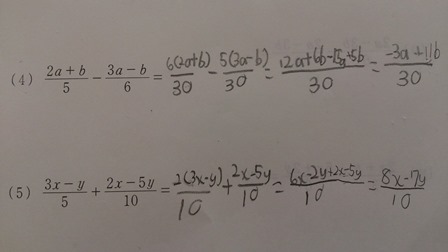 (4) (2a+b)/5 − (3a−b)/6 = 6(2a+b)/30 − 5(3a−b)/30 = (12a+6b−15a+5b)/30 = (−3a+11b)/30
(5) (3x−y)/5 + (2x−5y)/10 = 2(3x−y)/10 + (2x−5y)/10 = (6x−2y+2x−5y)/10 = (8x−7y)/10